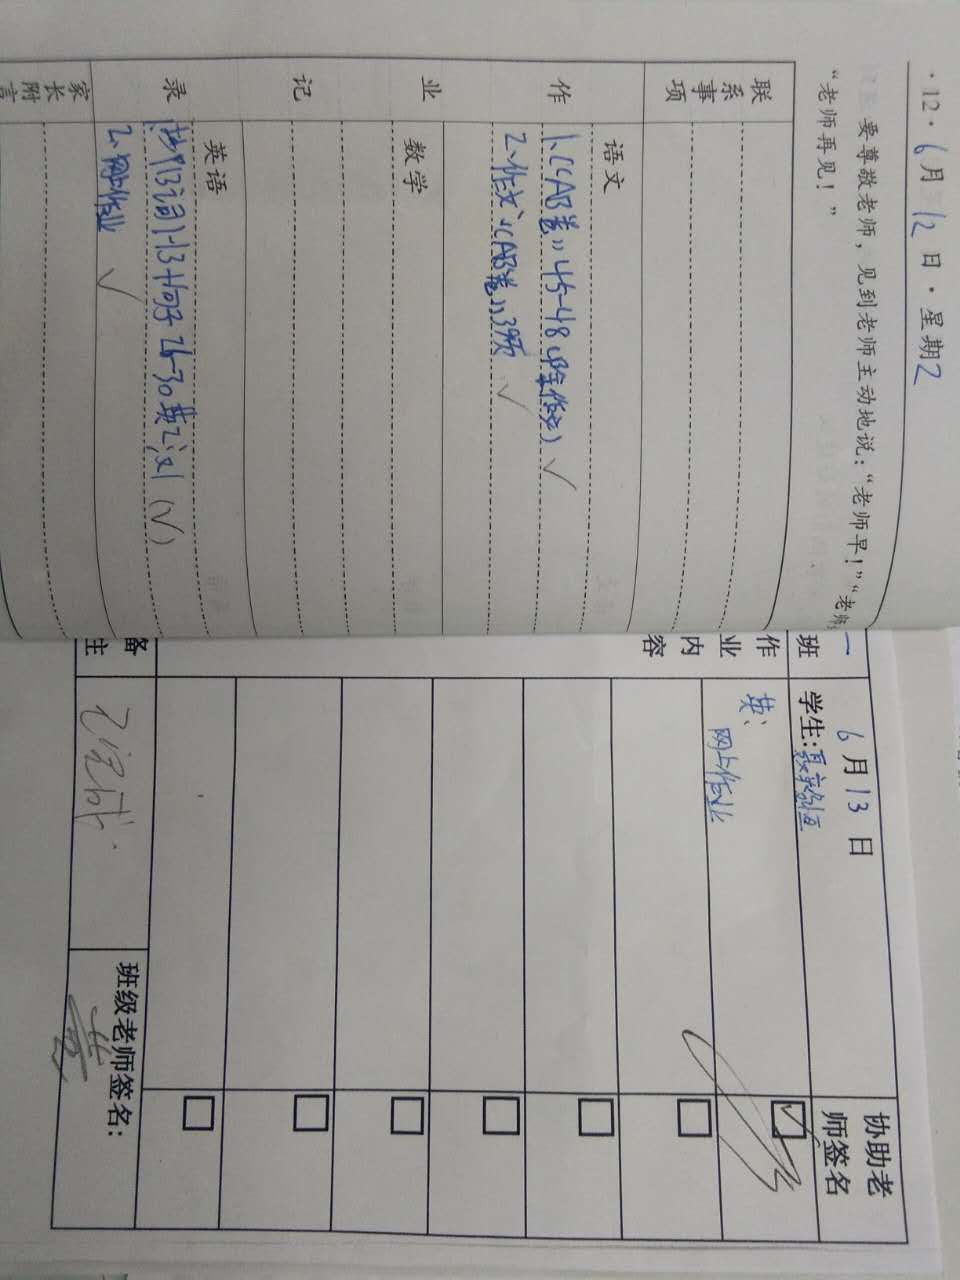 ·12· 6月12日·星期2
要尊敬老师，见到老师主动地说：“老师早！”“老师
“老师再见！”
联系事项
作业记录
语文
1、《AB卷》45-48（除作文）✓
2、作文：《AB卷》39页 ✓
数学
英语
1、抄B词1-13+句子26-30英2汉1 (✓)
2、网上作业 ✓
家长附言
一班
6月13日
学生:
协助老师签名
作业内容
英：
网上作业
备注
已完成.
班级老师签名: